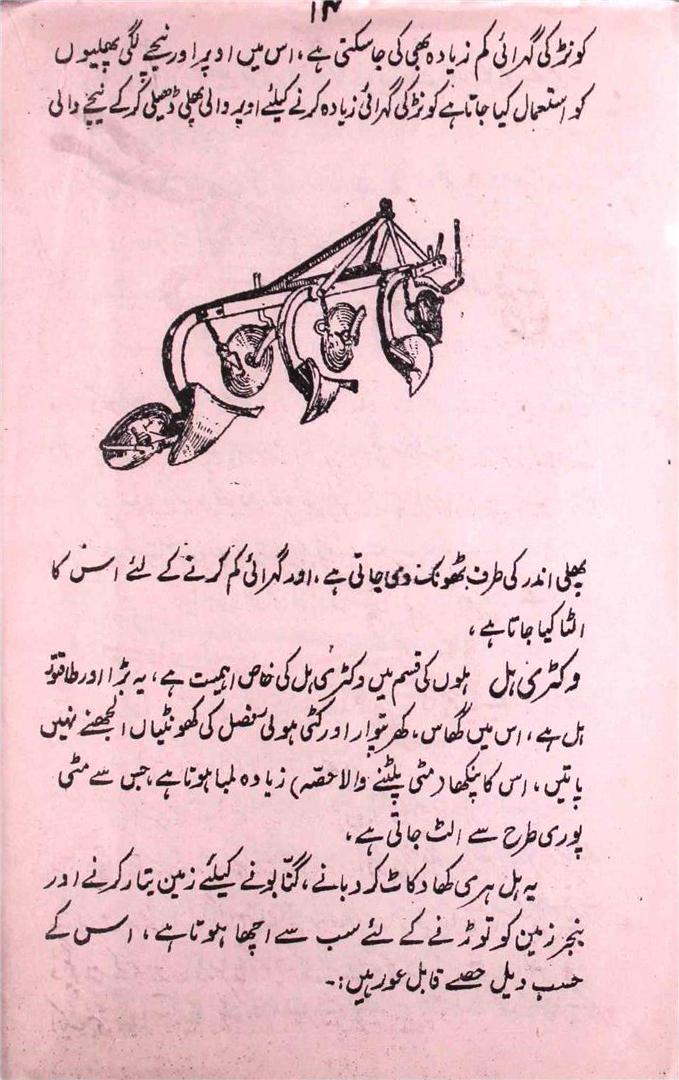 ۱۴
کونڑ کی گہرائی کم زیادہ بھی کی جا سکتی ہے، اس میں اوپر اور نیچے لگی پھلیوں
کو استعمال کیا جاتا ہے کونڑ کی گہرائی زیادہ کرنے کیلئے اوپر والی پھلی ڈھیلی کر کے نیچے والی
پھلی اندر کی طرف ٹھونک دی جاتی ہے، اور گہرائی کم کرنے کے لئے اس کا
الٹا کیا جاتا ہے،
وکٹری ہل ہلوں کی قسم میں وکٹری ہل کی خاص اہمیت ہے، یہ بڑا اور طاقتور
ہل ہے، اس میں گھاس، کھرپتوار اور کٹی ہوئی فصل کی کھونٹیاں الجھنے نہیں
پاتیں، اس کا پنکھا (مٹی پلٹنے والا حصّہ) زیادہ لمبا ہوتا ہے، جس سے مٹی
پوری طرح سے الٹ جاتی ہے،
یہ ہل ہری کھاد کاٹ کر دبانے، گنّا بونے کیلئے زمین تیار کرنے اور
بنجر زمین کو توڑنے کے لئے سب سے اچھا ہوتا ہے، اس کے
حسب ذیل حصے قابل غور ہیں :۔